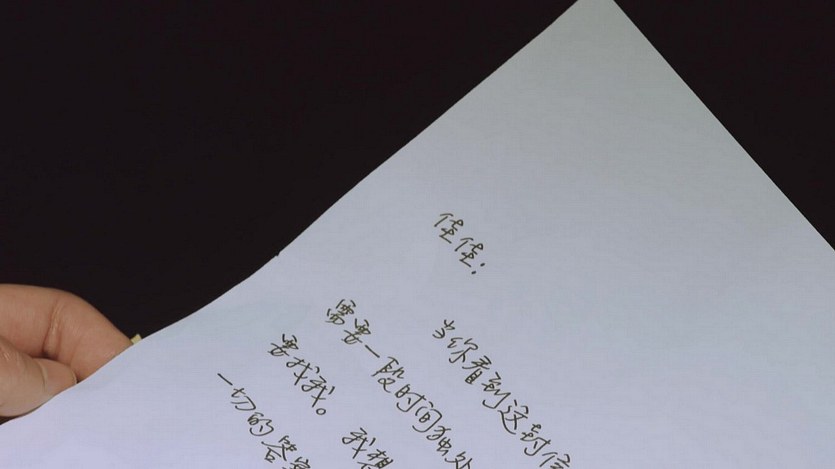 佳佳：
当你看到这封信
需要一段时间独处
要找我。我想
一切的答案